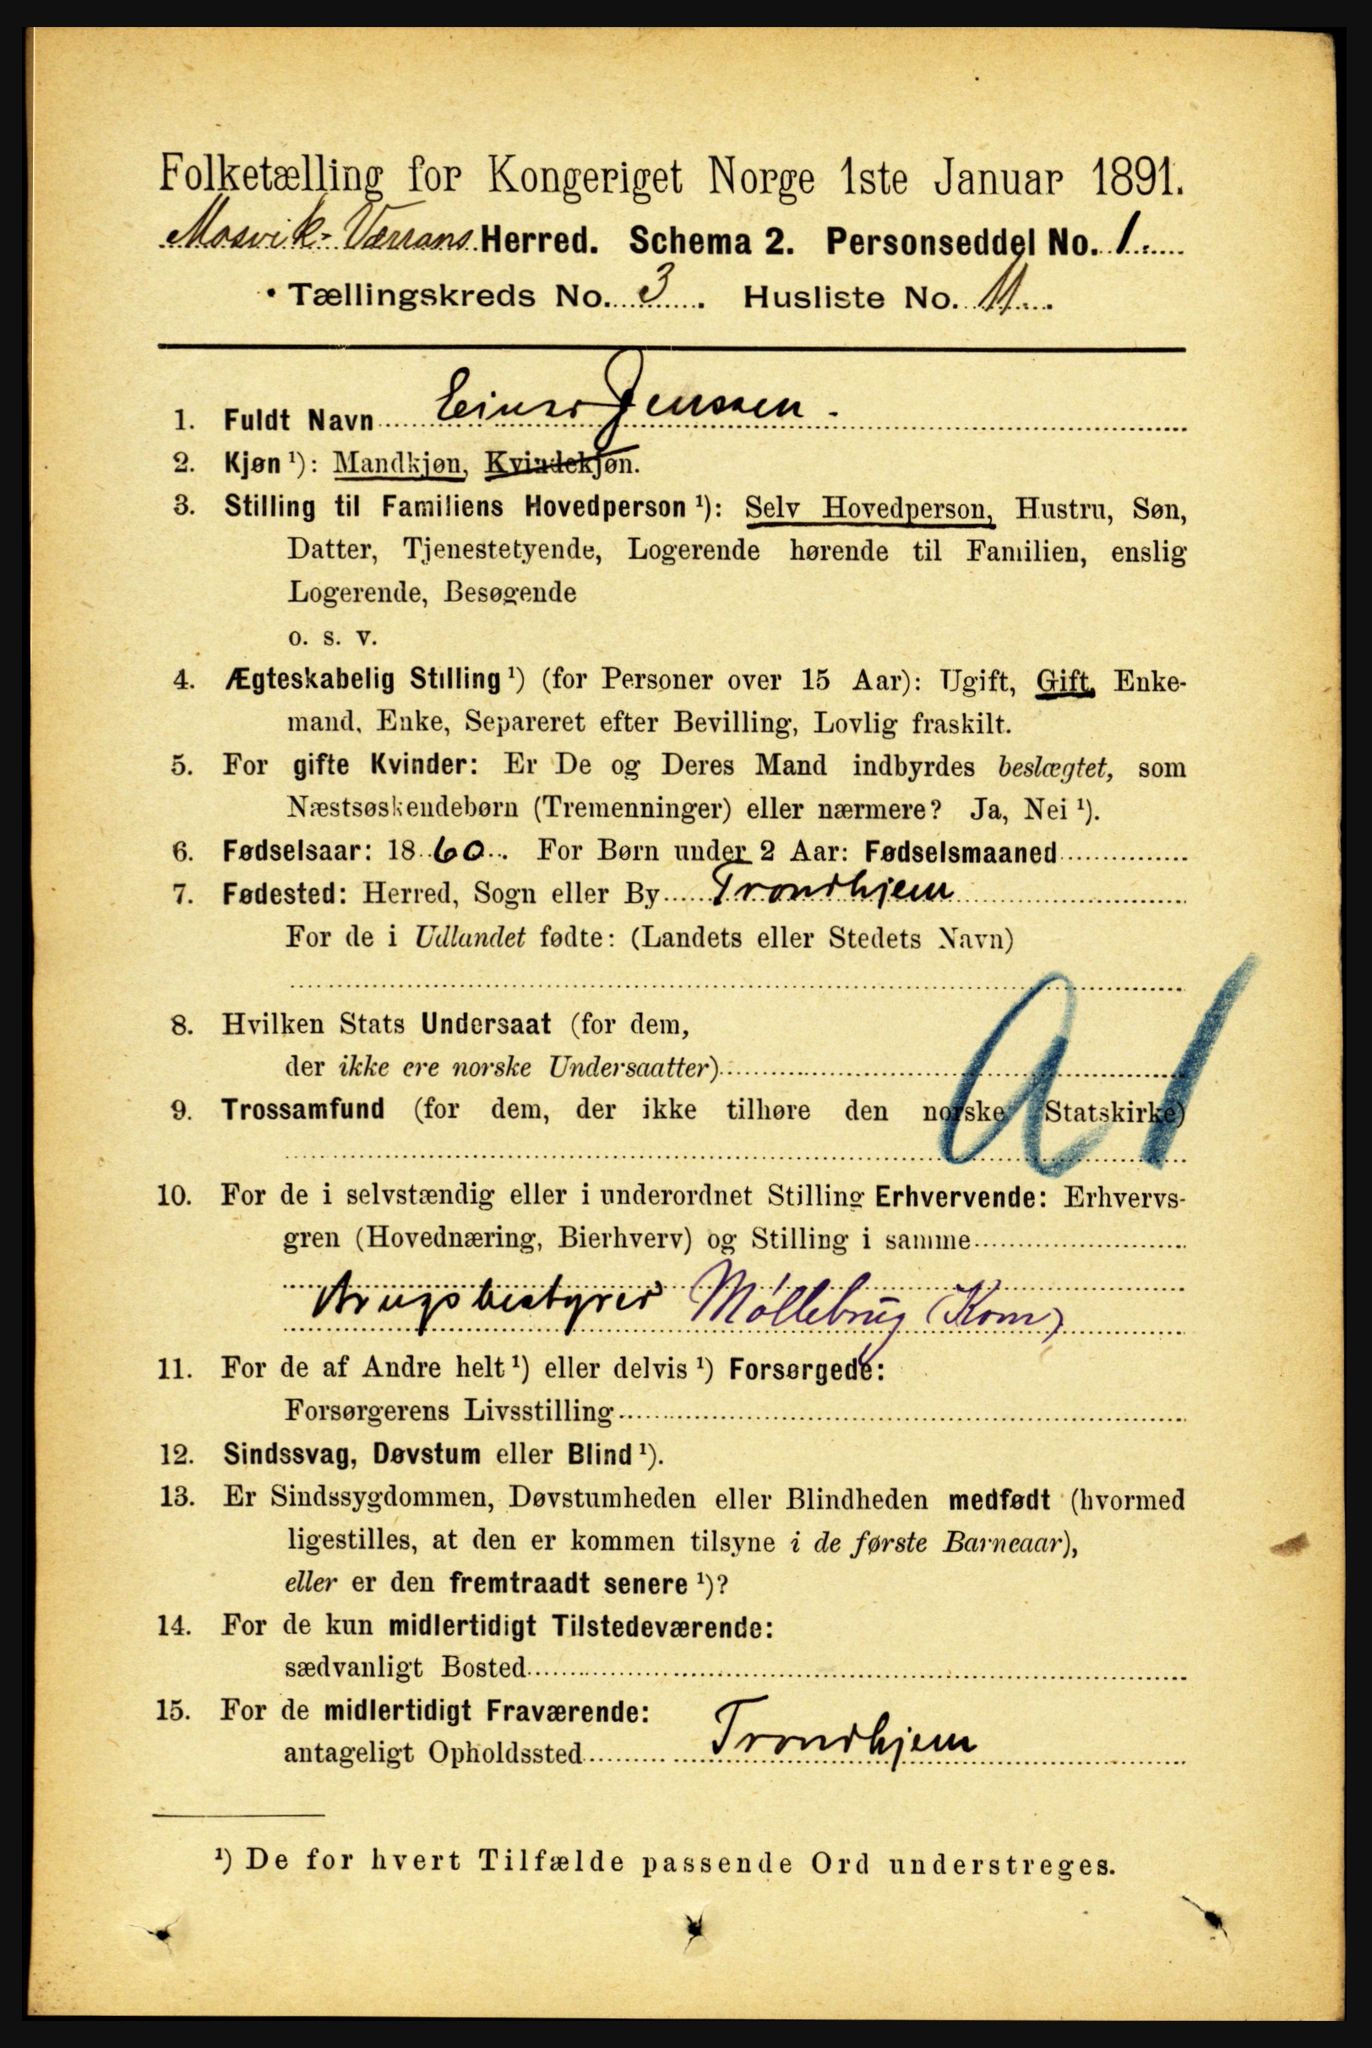 Folketælling for Kongeriget Norge 1ste Januar 1891.
Mosvik-Værrans Herred. Schema 2. Personseddel No. 1.
Tællingskreds No. 3. Husliste No. 11.
1. Fuldt Navn Einar Jenssen.
2. Kjøn ¹): Mandkjøn, Kvindekjøn.
3. Stilling til Familiens Hovedperson ¹): Selv Hovedperson, Hustru, Søn,
Datter, Tjenestetyende, Logerende hørende til Familien, enslig
Logerende, Besøgende
o. s. v.
4. Ægteskabelig Stilling ¹) (for Personer over 15 Aar): Ugift, Gift, Enke-
mand, Enke, Separeret efter Bevilling, Lovlig fraskilt.
5. For gifte Kvinder: Er De og Deres Mand indbyrdes beslægtet, som
Næstsøskendebørn (Tremenninger) eller nærmere? Ja, Nei ¹).
6. Fødselsaar: 1860. For Børn under 2 Aar: Fødselsmaaned
7. Fødested: Herred, Sogn eller By Trondhjem
For de i Udlandet fødte: (Landets eller Stedets Navn)
8. Hvilken Stats Undersaat (for dem,
der ikke ere norske Undersaatter)
a1
9. Trossamfund (for dem, der ikke tilhøre den norske Statskirke)
10. For de i selvstændig eller i underordnet Stilling Erhvervende: Erhvervs-
gren (Hovednæring, Bierhverv) og Stilling i samme
Brugsbestyrer Møllebrug (Kom)
11. For de af Andre helt ¹) eller delvis ¹) Forsørgede:
Forsørgerens Livsstilling
12. Sindssvag, Døvstum eller Blind ¹).
13. Er Sindssygdommen, Døvstumheden eller Blindheden medfødt (hvormed
ligestilles, at den er kommen tilsyne i de første Barneaar),
eller er den fremtraadt senere ¹)?
14. For de kun midlertidigt Tilstedeværende:
sædvanligt Bosted
15. For de midlertidigt Fraværende:
antageligt Opholdssted Trondhjem
¹) De for hvert Tilfælde passende Ord understreges.